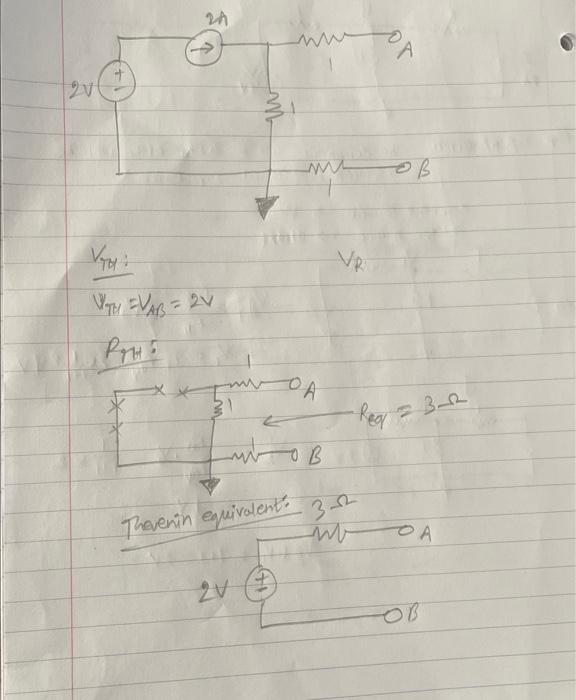 2A
A
1
2V
+
-
1
B
1
V_TH:
V_R
V_TH = V_AB = 2V
R_TH:
1
A
1
Req = 3Ω
1
B
Thevenin equivalent:
3Ω
A
2V
+
-
B